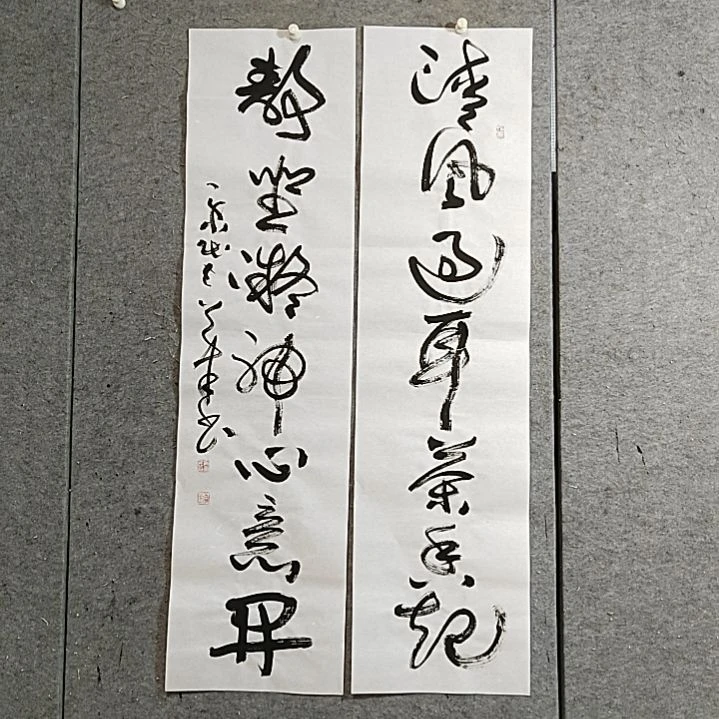 清风过耳茶香起
静坐凝神心意开